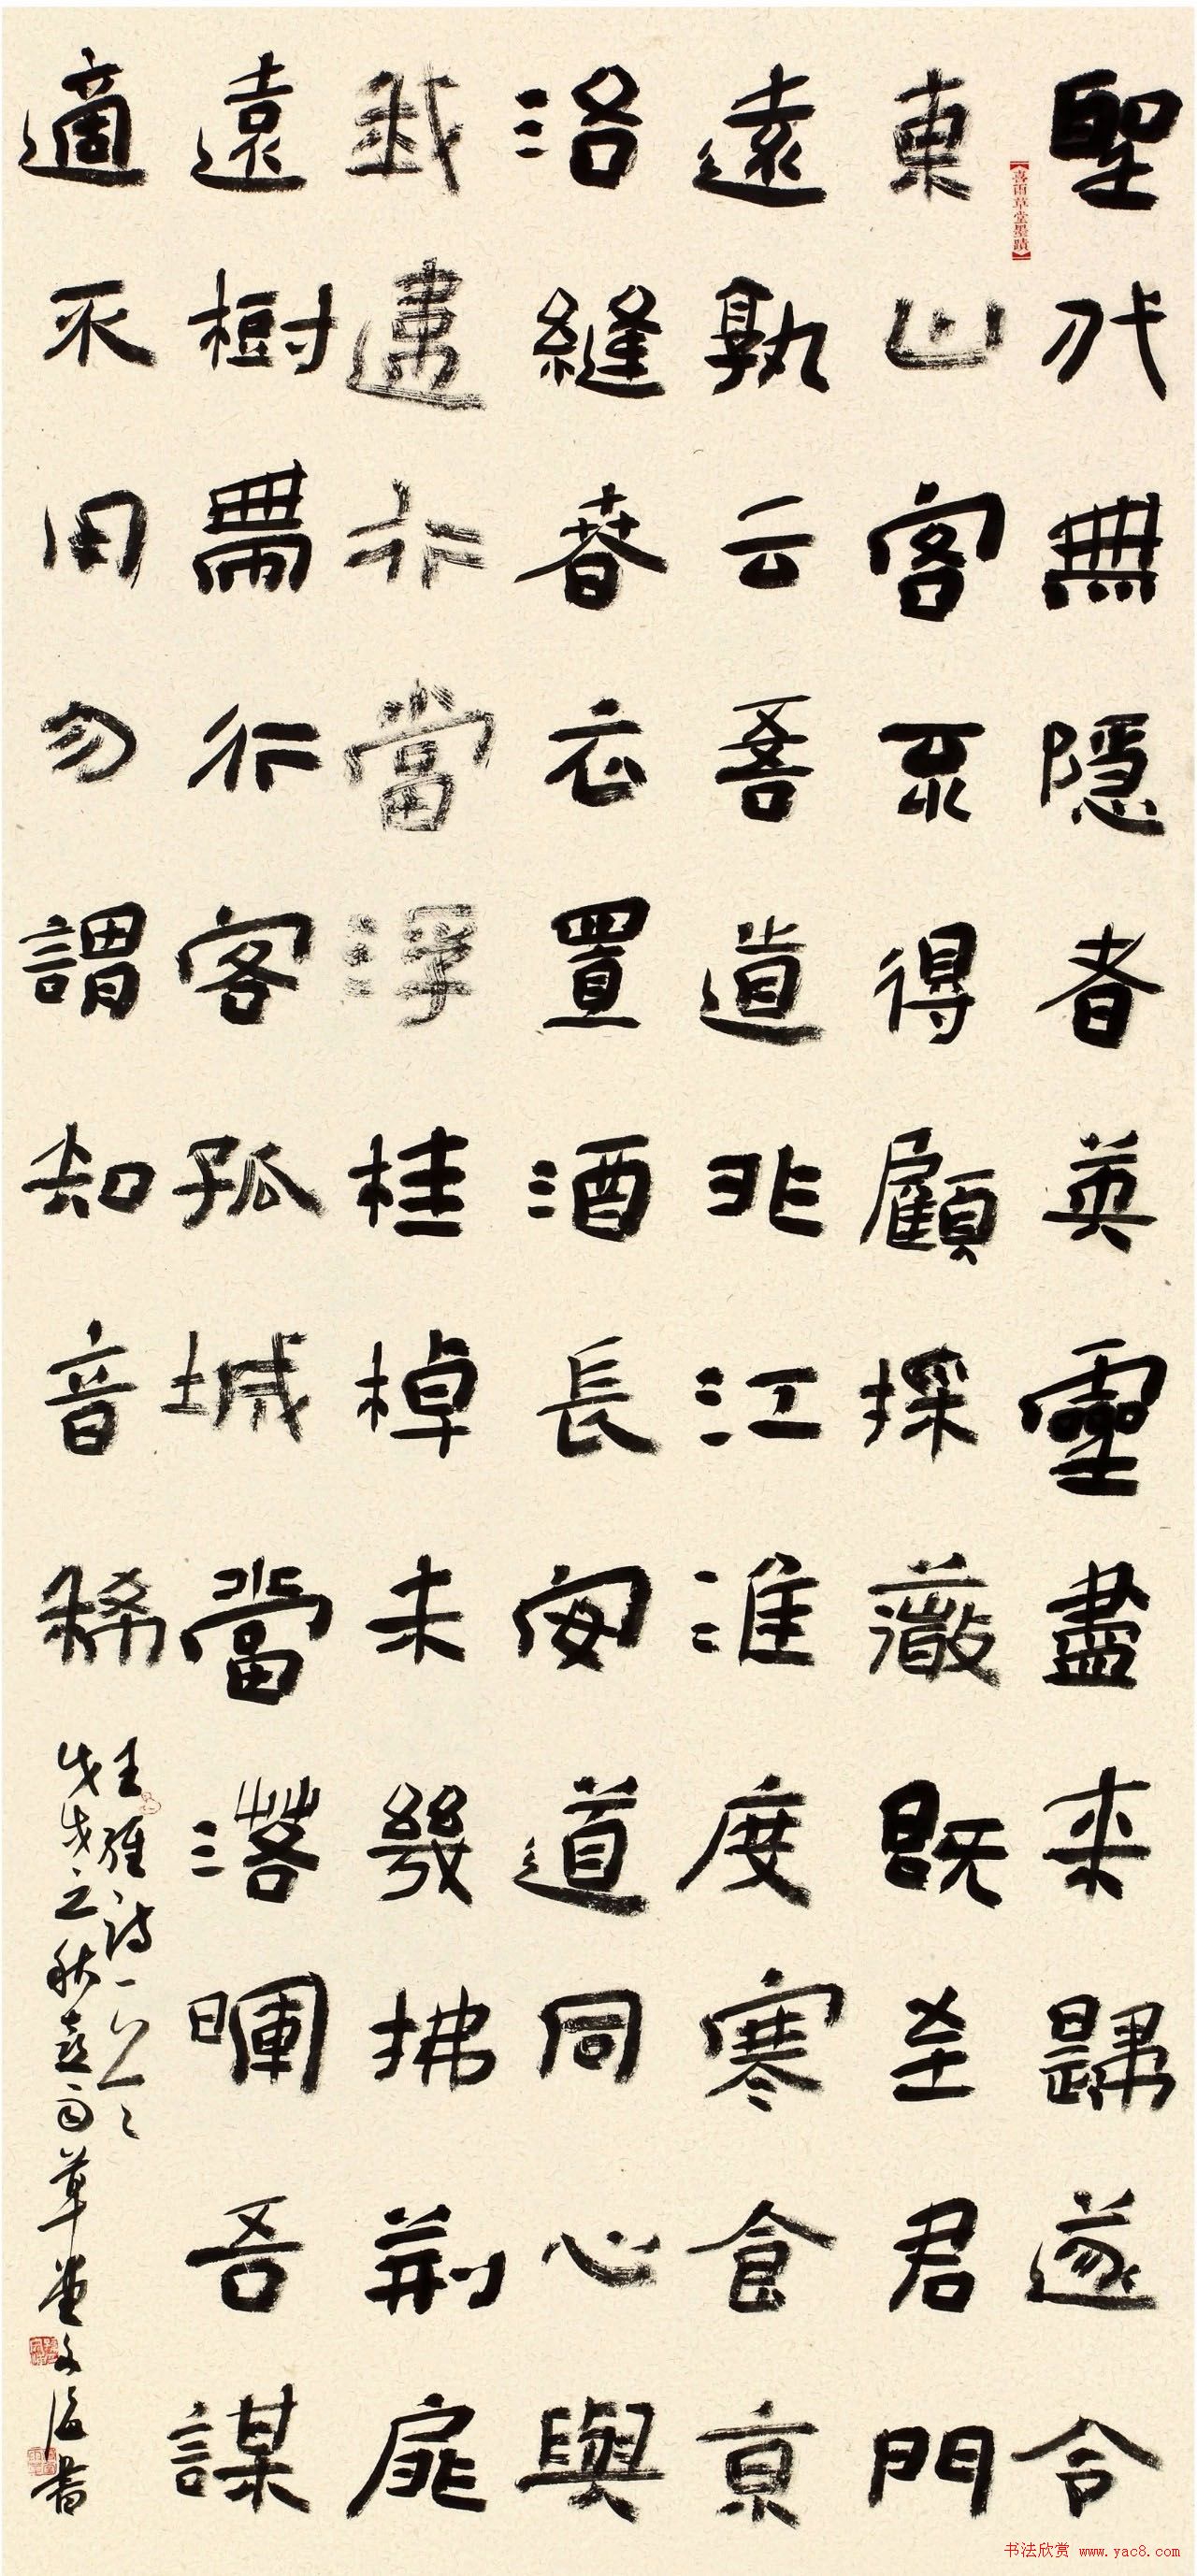 聖代無隱者英靈盡來歸遂令
【喜雨草堂墨蹟】
東山客不得顧採薇既至君門
遠孰云吾道非江淮度寒食京
洛縫春衣置酒長安道同心與
我違行當浮桂棹未幾拂荊扉
遠樹帶行客孤城當落暉吾謀
適不用勿謂知音稀
王維詩一
戊戌之秋喜雨草堂文書
书法欣赏 www.yac8.com